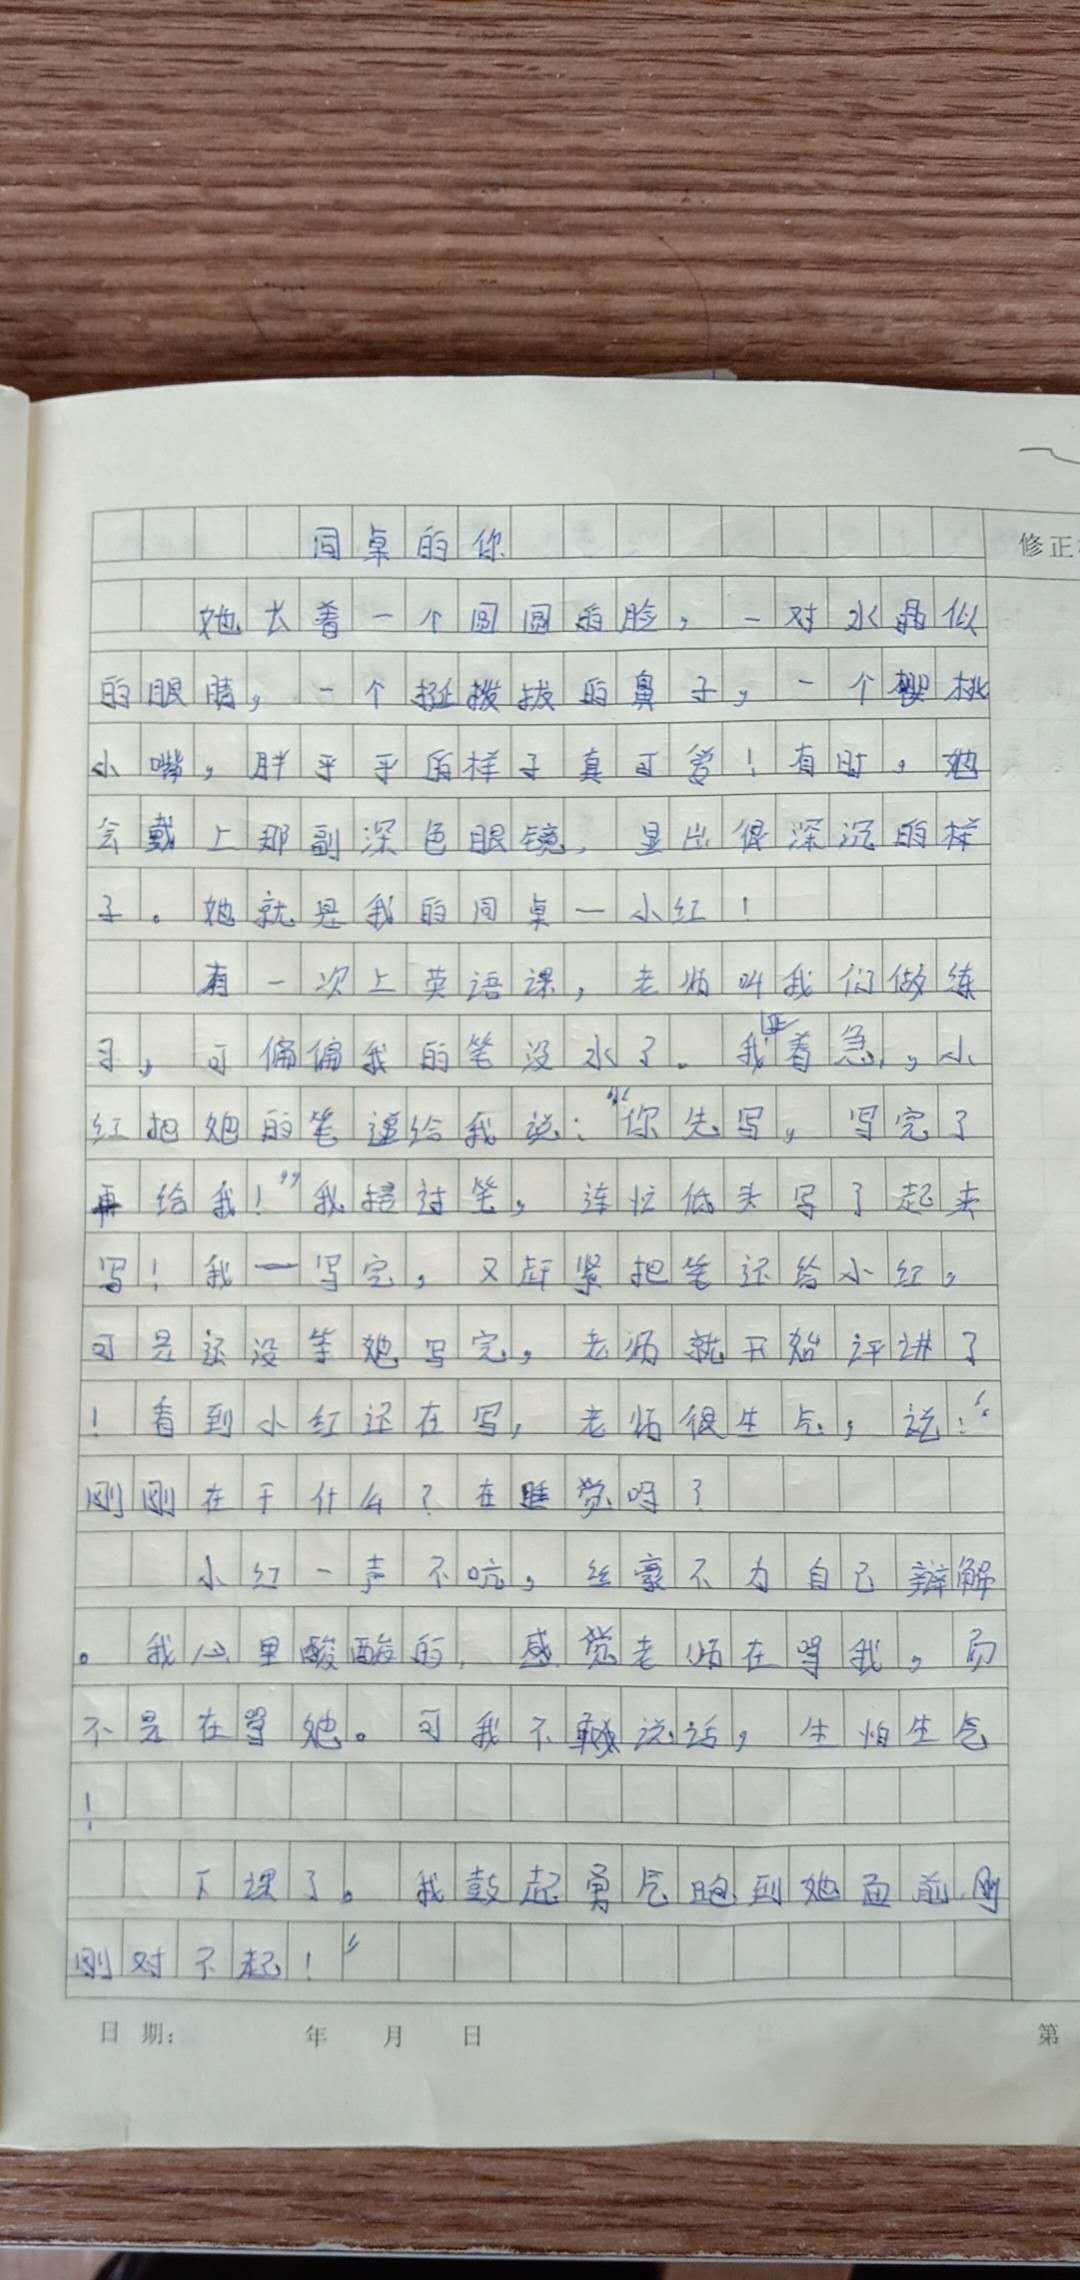 修正
同桌的你
她长着一个圆圆的脸，一对水晶似
的眼睛，一个挺拨拔的鼻子，一个樱桃
小嘴，胖乎乎的样子真可爱！有时，她
会戴上那副深色眼镜，显出很深沉的样
子。她就是我的同桌一小红！
有一次上英语课，老师叫我们做练
习，可偏偏我的笔没水了．我正着急，小
红把她的笔递给我说：“你先写，写完了
再给我！”我接过笔，连忙低头写了起来
写！我一写完，又赶紧把笔还给小红，
可是还没等她写完，老师就开始评讲了
！看到小红还在写，老师很生气，说：“
刚刚在干什么？在睡觉吗？
小红一声不吭，丝豪不为自己辩解
。我心里酸酸的，感觉老师在骂我，而
不是在骂她。可我不敢说话，生怕生气
！
下课了。我鼓起勇气跑到她面前，刚
刚对不起！”
日期： 年 月 日
第